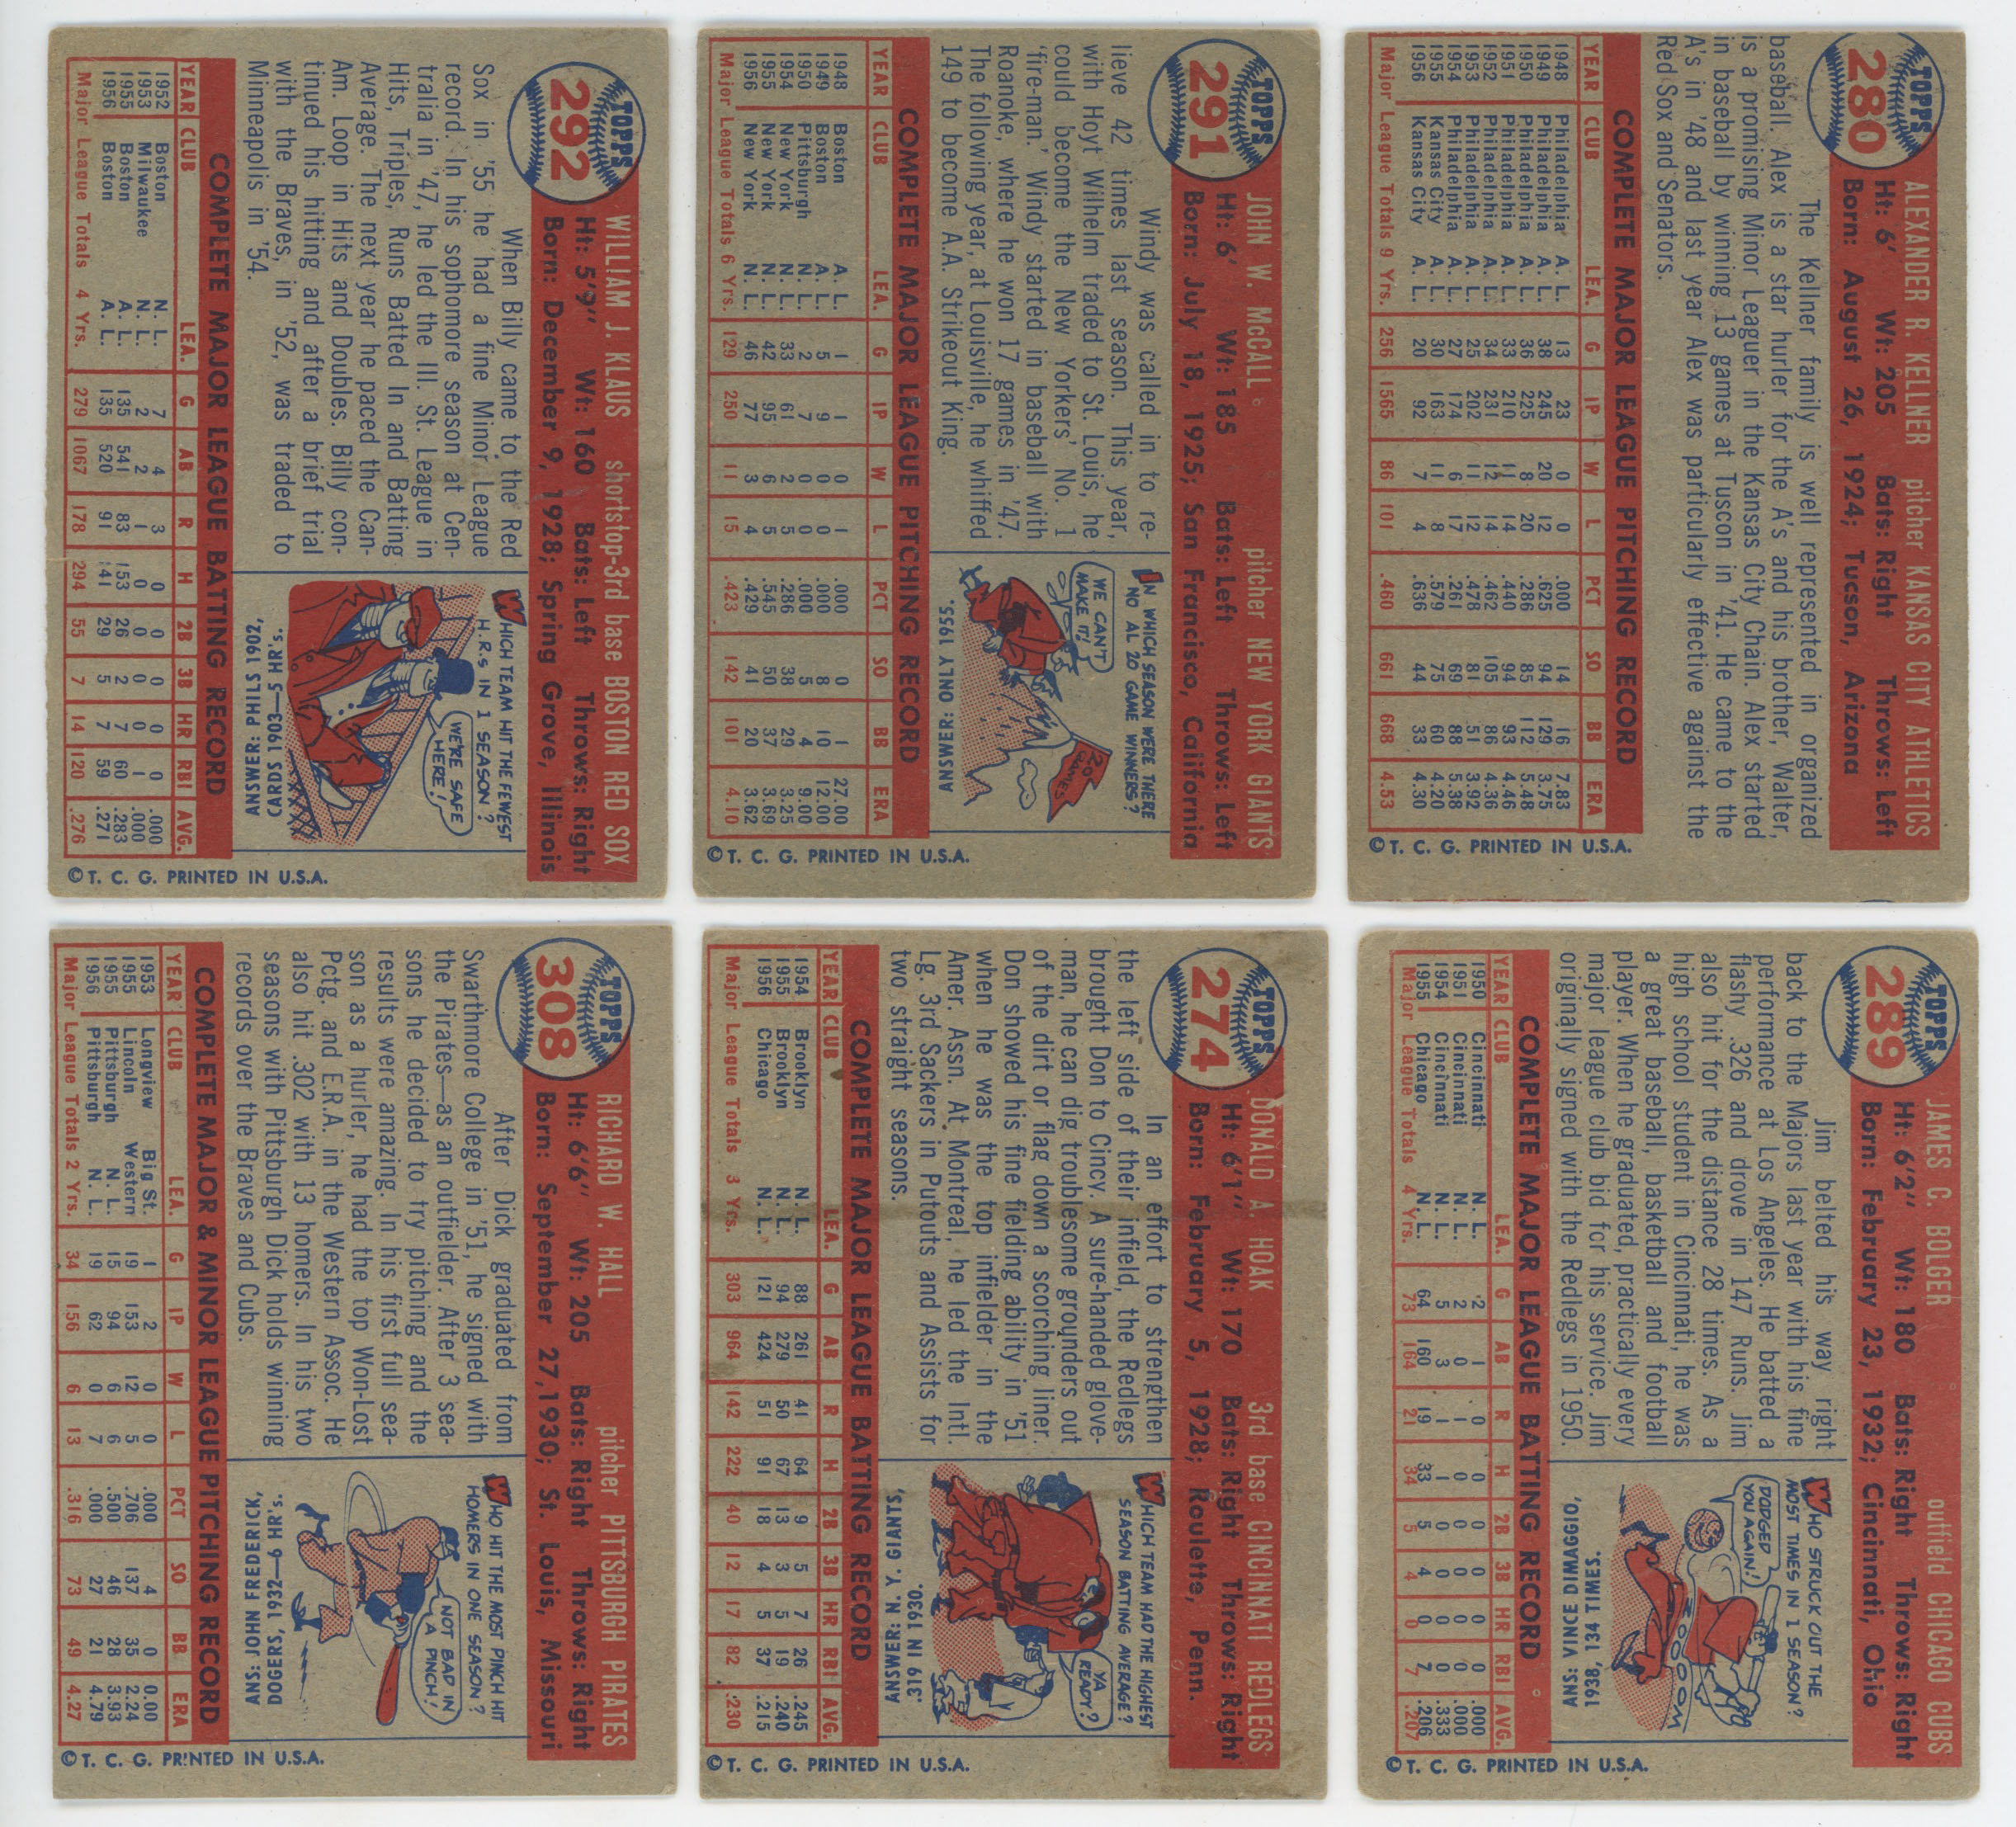 TOPPS
280
ALEXANDER R. KELLNER pitcher KANSAS CITY ATHLETICS
Ht: 6' Wt: 205 Bats: Right Throws: Left
Born: August 26, 1924; Tucson, Arizona
The Kellner family is well represented in organized
baseball. Alex is a star hurler for the A's and his brother, Walter,
is a promising Minor Leaguer in the Kansas City Chain. Alex started
in baseball by winning 13 games at Tuscon in '41. He came to the
A's in '48 and last year Alex was particularly effective against the
Red Sox and Senators.
COMPLETE MAJOR LEAGUE PITCHING RECORD
YEAR CLUB LEA. G IP W L PCT SO BB ERA
1948 Philadelphia A. L. 13 23 0 0 .000 14 16 7.83
1949 Philadelphia A. L. 38 245 20 12 .625 94 129 3.75
1950 Philadelphia A. L. 36 225 8 20 .286 85 112 5.48
1951 Philadelphia A. L. 33 210 11 14 .440 94 93 4.46
1952 Philadelphia A. L. 34 231 12 14 .462 105 86 4.36
1953 Philadelphia A. L. 25 202 11 12 .478 81 51 3.92
1954 Philadelphia A. L. 27 174 6 17 .261 69 88 5.38
1955 Kansas City A. L. 30 163 11 8 .579 75 60 4.20
1956 Kansas City A. L. 20 92 7 4 .636 44 33 4.30
Major League Totals 9 Yrs. 256 1565 86 101 .460 661 668 4.53
© T. C. G. PRINTED IN U.S.A.
TOPPS
289
JAMES C. BOLGER outfield CHICAGO CUBS
Ht: 6'2" Wt: 180 Bats: Right Throws: Right
Born: February 23, 1932; Cincinnati, Ohio
Jim belted his way right
back to the Majors last year with his fine
performance at Los Angeles. He batted a
flashy .326 and drove in 147 Runs. Jim
also hit for the distance 28 times. As a
high school student in Cincinnati, he was
a great baseball, basketball and football
player. When he graduated, practically every
major league club bid for his service. Jim
originally signed with the Redlegs in 1950.
WHO STRUCK OUT THE
MOST TIMES IN 1 SEASON?
DODGED
YOU AGAIN!
ZOOOOM
ANS: VINCE DIMAGGIO,
1938, 134 TIMES.
COMPLETE MAJOR LEAGUE BATTING RECORD
YEAR CLUB LEA. G AB R H 2B 3B HR RBI AVG.
1950 Cincinnati N. L. 2 1 0 0 0 0 0 0 .000
1951 Cincinnati N. L. 2 0 1 0 0 0 0 0 .000
1954 Cincinnati N. L. 5 3 1 1 0 0 0 0 .333
1955 Chicago N. L. 64 160 19 33 5 4 0 7 .206
Major League Totals 4 Yrs. 73 164 21 34 5 4 0 7 .207
© T. C. G. PRINTED IN U.S.A.
TOPPS
291
JOHN W. McCALL pitcher NEW YORK GIANTS
Ht: 6' Wt: 185 Bats: Left Throws: Left
Born: July 18, 1925; San Francisco, California
Windy was called in to re-
lieve 42 times last season. This year,
with Hoyt Wilhelm traded to St. Louis, he
could become the New Yorkers' No. 1
'fire-man.' Windy started in baseball with
Roanoke, where he won 17 games in '47.
The following year, at Louisville, he whiffed
149 to become A.A. Strikeout King.
IN WHICH SEASON WERE THERE
NO AL 20 GAME WINNERS?
WE CAN'T
MAKE IT!
20
GAMES
ANSWER: ONLY 1955.
COMPLETE MAJOR LEAGUE PITCHING RECORD
YEAR CLUB LEA. G IP W L PCT SO BB ERA
1948 Boston A. L. 1 1 0 1 .000 0 1 27.00
1949 Boston A. L. 5 9 0 0 .000 8 10 12.00
1950 Pittsburgh N. L. 2 7 0 0 .000 5 4 9.00
1954 New York N. L. 33 61 2 5 .286 38 29 3.25
1955 New York N. L. 42 95 6 5 .545 50 37 3.69
1956 New York N. L. 46 77 3 4 .429 41 20 3.62
Major League Totals 6 Yrs. 129 250 11 15 .423 142 101 4.10
© T. C. G. PRINTED IN U.S.A.
TOPPS
274
DONALD A. HOAK 3rd base CINCINNATI REDLEGS
Ht: 6'1" Wt: 170 Bats: Right Throws: Right
Born: February 5, 1928; Roulette, Penn.
In an effort to strengthen
the left side of their infield, the Redlegs
brought Don to Cincy. A sure-handed glove-
man, he can dig troublesome grounders out
of the dirt or flag down a scorching liner.
Don showed his fine fielding ability in '51
when he was the top infielder in the
Amer. Assn. At Montreal, he led the Intl.
Lg. 3rd Sackers in Putouts and Assists for
two straight seasons.
WHICH TEAM HAD THE HIGHEST
SEASON BATTING AVERAGE?
YA
READY?
ANSWER: N. Y. GIANTS,
.319 IN 1930.
COMPLETE MAJOR LEAGUE BATTING RECORD
YEAR CLUB LEA. G AB R H 2B 3B HR RBI AVG.
1954 Brooklyn N. L. 88 261 41 64 9 5 7 26 .245
1955 Brooklyn N. L. 94 279 50 67 13 3 5 19 .240
1956 Chicago N. L. 121 424 51 91 18 4 5 37 .215
Major League Totals 3 Yrs. 303 964 142 222 40 12 17 82 .230
© T. C. G. PRINTED IN U.S.A.
TOPPS
292
WILLIAM J. KLAUS shortstop-3rd base BOSTON RED SOX
Ht: 5'9" Wt: 160 Bats: Left Throws: Right
Born: December 9, 1928; Spring Grove, Illinois
When Billy came to the Red
Sox in '55 he had a fine Minor League
record. In his sophomore season at Cen-
tralia in '47, he led the Ill. St. League in
Hits, Triples, Runs Batted In and Batting
Average. The next year he paced the Can-
Am. Loop in Hits and Doubles. Billy con-
tinued his hitting and after a brief trial
with the Braves, in '52, was traded to
Minneapolis in '54.
WHICH TEAM HIT THE FEWEST
H.R.s IN 1 SEASON?
WE'RE SAFE
HERE!
ANSWER: PHILS 1902,
CARDS 1903—5 HR's.
COMPLETE MAJOR LEAGUE BATTING RECORD
YEAR CLUB LEA. G AB R H 2B 3B HR RBI AVG.
1952 Boston N. L. 7 4 3 0 0 0 0 0 .000
1953 Milwaukee N. L. 2 2 1 0 0 0 0 1 .000
1955 Boston A. L. 135 541 83 153 26 2 7 60 .283
1956 Boston A. L. 135 520 91 141 29 5 7 59 .271
Major League Totals 4 Yrs. 279 1067 178 294 55 7 14 120 .276
© T. C. G. PRINTED IN U.S.A.
TOPPS
308
RICHARD W. HALL pitcher PITTSBURGH PIRATES
Ht: 6'6" Wt: 205 Bats: Right Throws: Right
Born: September 27, 1930; St. Louis, Missouri
After Dick graduated from
Swarthmore College in '51, he signed with
the Pirates—as an outfielder. After 3 sea-
sons he decided to try pitching and the
results were amazing. In his first full sea-
son as a hurler, he had the top Won-Lost
Pctg. and E.R.A. in the Western Assoc. He
also hit .302 with 13 homers. In his two
seasons with Pittsburgh Dick holds winning
records over the Braves and Cubs.
WHO HIT THE MOST PINCH HIT
HOMERS IN ONE SEASON?
NOT BAD IN
A PINCH!
ANS: JOHN FREDERICK,
DOGERS, 1932—6 HR's.
COMPLETE MAJOR & MINOR LEAGUE PITCHING RECORD
YEAR CLUB LEA. G IP W L PCT SO BB ERA
1953 Longview Big St. 1 2 0 0 .000 4 0 0.00
1955 Lincoln Western 19 153 12 5 .706 137 35 2.24
1955 Pittsburgh N. L. 15 94 6 6 .500 46 28 3.93
1956 Pittsburgh N. L. 19 62 0 7 .000 27 21 4.79
Major League Totals 2 Yrs. 34 156 6 13 .316 73 49 4.27
© T. C. G. PRINTED IN U.S.A.